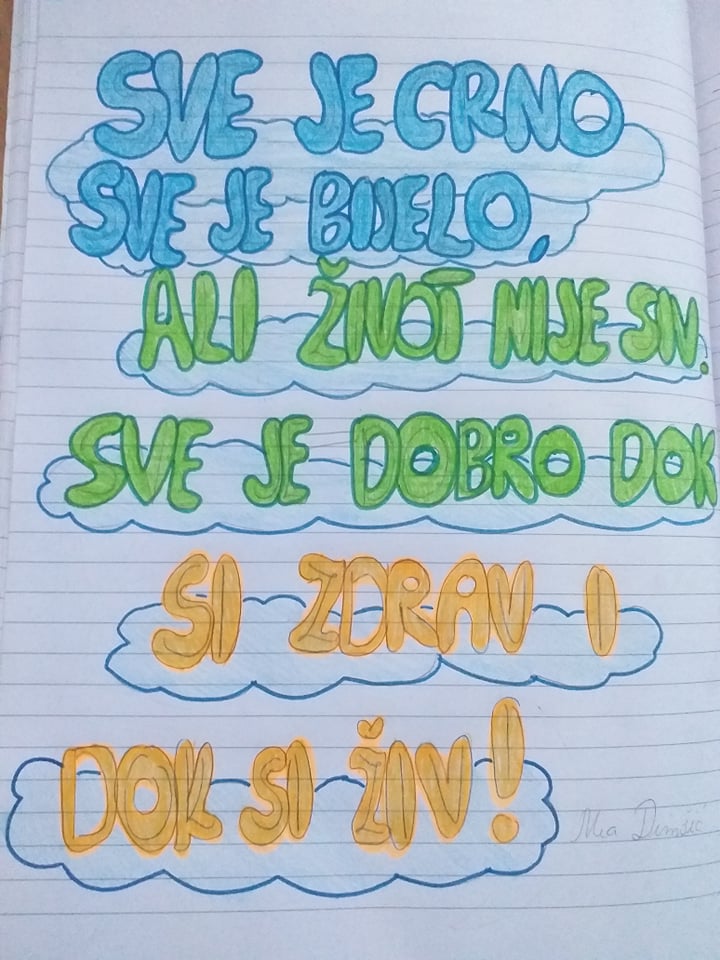 SVE JE CRNO
SVE JE BIJELO,
ALI ŽIVOT NIJE SIV.
SVE JE DOBRO DOK
SI ZDRAV I
DOK SI ŽIV!
Mia Dimšić